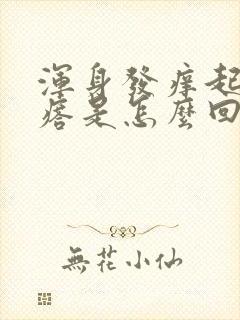 渾身發癢起
瘩是怎麼回
無花小仙